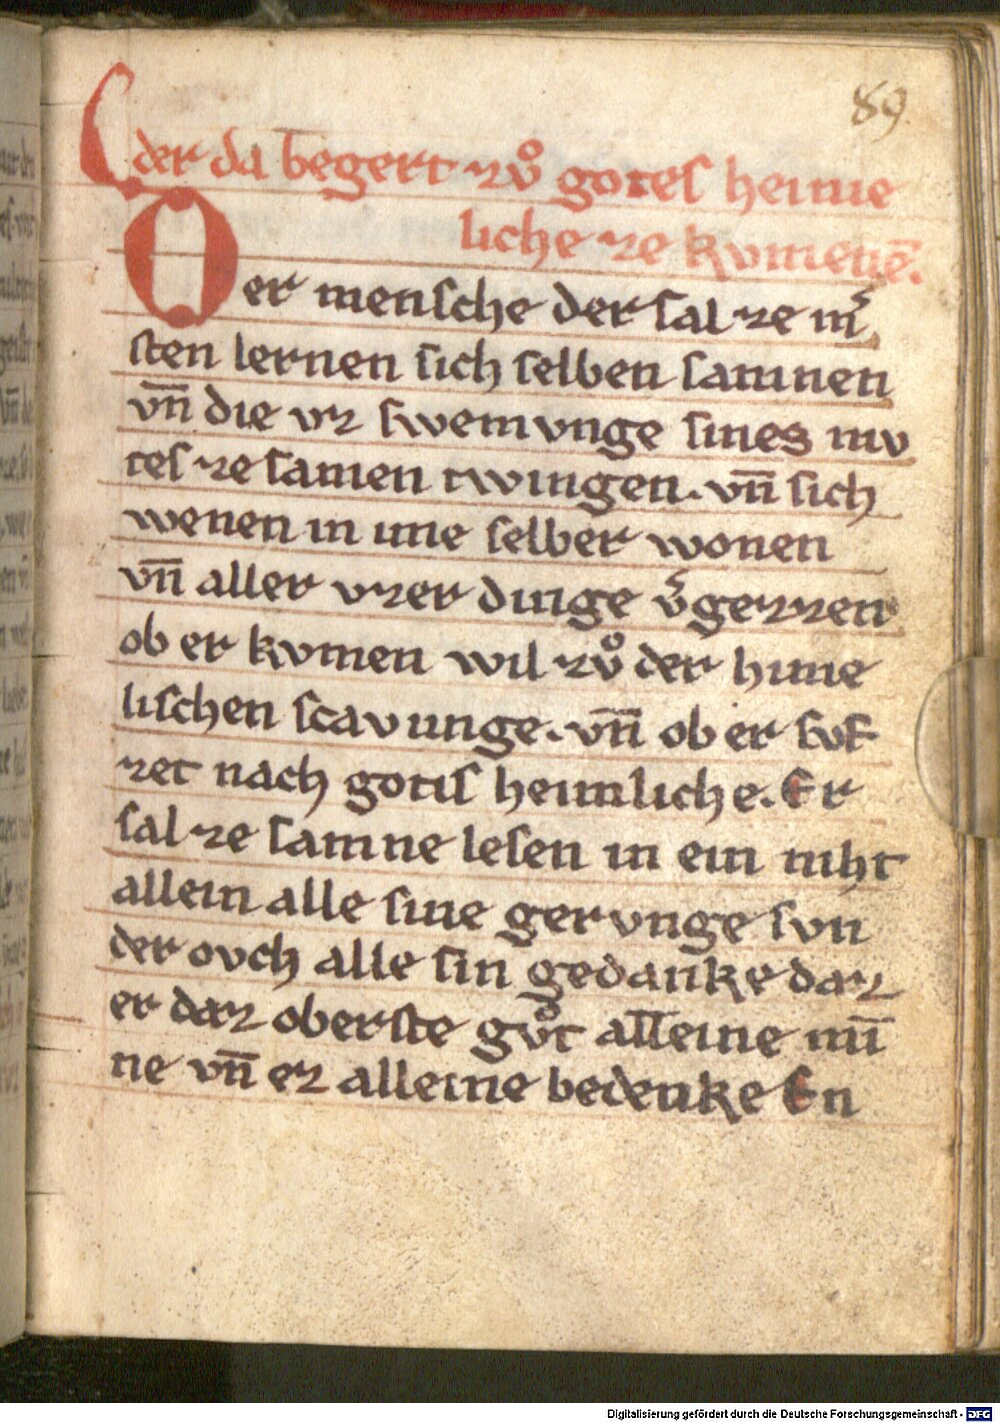 89
der da begert zů gotes heimе
liche ze kvmene̅.
Der mensche der sal ze m̅
sten lernen sich selben samnen
vn̅ die vz swemvnge sines mv
tes ze samen twingen. vn̅ sich
wenen in ime selber wonen
vn̅ aller vzer dinge v̾gezzen
ob er kvmen wil zů der hime
lischen scavunge. vn̅ ob er svf
zet nach gotis heimliche. Er
sal ze samne lesen in ein niht
allein alle sine gervnge svn
der ovch alle sin gedanke daz
er daz oberste gůt alleine mi̅
ne vn̅ ez alleine bedenke En
Digitalisierung gefördert durch die Deutsche Forschungsgemeinschaft - DFG